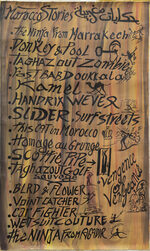 Morocco Stories
The Ninja From Marrakech
Donkey's Pool
Taghazout Zombie
Past Bab Doukkala
Kamel
Handrix Never
Slider Surf streets
This isn't Morocco
Homage au Grunge
Scottie Pipe
Taghazout Golf
Vengeur
sauvage
Bird & Flower
Point Catcher
Cat Fighter
Wetsuit Couture
the Ninja From